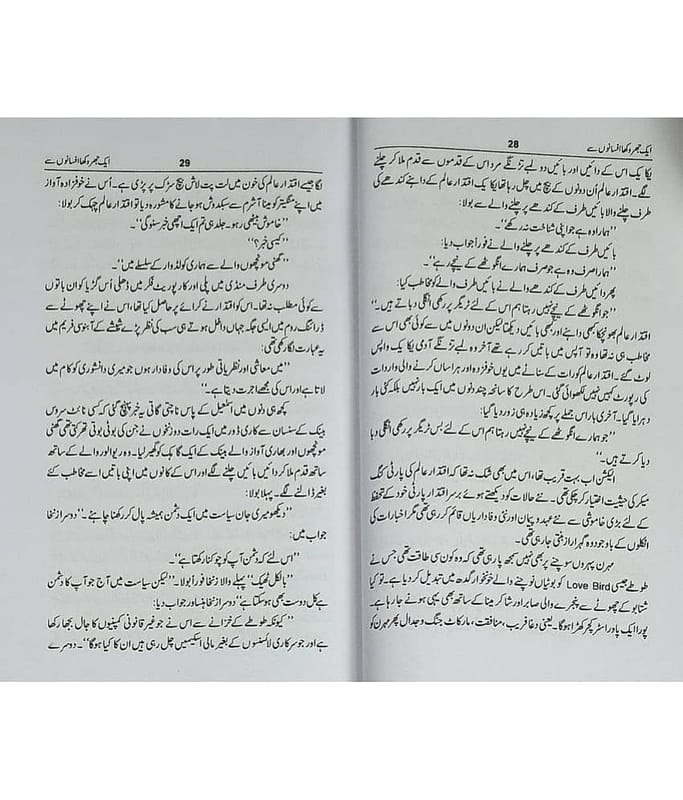 ایک جھروکھا افسانوں سے 28
یکا یک اس کے دائیں اور بائیں دو لمبے تڑنگے مرد اس کے قدموں سے قدم ملا کر چلنے
لگے۔ اقتدار عالم اُن دونوں کے بیچ چل رہا تھا یکا یک اقتدار عالم کے داہنے کندھے کی
طرف چلنے والا بائیں طرف کے کندھے پر چلنے والے سے بولا:
’’ہمارا وہ ہے جو اپنی شناخت نہ رکھے‘‘۔
بائیں طرف کے کندھے پر چلنے والے نے فوراً جواب دیا:
’’ہمارا صرف وہ ہے جو صرف ہمارے انگوٹھے کے نیچے رہے‘‘۔
پھر دائیں طرف کے کندھے پر چلنے والے نے بائیں طرف کے کندھے والے کو مخاطب کیا:
’’جو انگوٹھے کے نیچے نہیں رہتا ہم اس کے لئے ٹریگر پر رکھی انگلی دباتے ہیں۔‘‘
اقتدار عالم بھونچکا کبھی داہنے اور کبھی بائیں دیکھتا لیکن ان دونوں میں سے کوئی بھی اس سے
مخاطب ہی نہ تھا وہ تو آپس میں باتیں کر رہے تھے آخر وہ لمبے تڑنگے آدمی یکا یک واپس
لوٹ گئے۔ اقتدار عالم کو رات کے سنانے میں یوں خوفزدہ اور ہراساں کرنے والی واردات
کی رپورٹ کہیں نہیں لکھوائی گئی۔ اس طرح کا سانحہ چند دنوں میں ایک بار نہیں بلکہ کئی بار
دہرایا گیا۔ آخری بار اس جملے پر کچھ زیادہ ہی زور دیا گیا:
’’جو ہمارے انگوٹھے کے نیچے نہیں رہتا ہم اس کے لئے بس ٹریگر پر رکھی انگلی دبا
دیا کرتے ہیں۔‘‘
الیکشن اب بہت قریب تھا، اس میں بھی شک نہ تھا کہ اقتدار عالم کی پارٹی کنگ
میکر کی حیثیت اختیار کر چکی تھی۔ نئے حالات کو دیکھتے ہوئے برسر اقتدار پارٹی خود کے تحفظ
کے لئے بڑی خاموشی سے نئے عہد و پیمان اور نئی وفاداریاں قائم کر رہی تھی مگر اخبارات کی
انکلوں کے باوجود وہ گہرا راز بنتی جا رہی تھی۔
مہرن پہروں سوچنے پر بھی نہیں سمجھ پا رہی تھی کہ وہ کون سی طاقت تھی جس نے
طوطے جیسی Love Bird کو بوٹیاں نوچنے والے خونخوار گدھ میں تبدیل کر دیا ہے۔ تو کیا
شتابو کے چھوٹے سے پنجرے والی صابر اور شاکر مینا کے ساتھ بھی یہی ہونے جا رہا ہے۔
پورا ایک پاور اسٹرکچر کھڑا ہوگا۔ یعنی دغا فریب، منافقت، مار کاٹ جنگ وجدال پھر مہرن کو
ایک جھروکھا افسانوں سے 29
لگا جیسے اقتدار عالم کی خون میں لت پت لاش بیچ سڑک پر پڑی ہے۔ اُس نے خوفزدہ آواز
میں اپنے منگیتر کو مینا آشرم سے سبکدوش ہو جانے کا مشورہ دیا تو اقتدار عالم چہک کر بولا:
’’خاموش بیٹھی رہو۔ جلد ہی تم ایک اچھی خبر سنو گی‘‘۔
’’کیسی خبر؟‘‘
’’گھنی مونچھوں والے سے ہماری کولڈ وار کے سلسلے میں‘‘۔
دوسری طرف منڈی میں پلی اور کارپوریٹ فکر میں ڈھلی اُس گڑیا کو ان باتوں
سے کوئی مطلب نہ تھا۔ اس کو اقتدار نے کرائے پر حاصل کیا تھا، اس نے اپنے چھوٹے سے
ڈرائنگ روم میں ایسی جگہ جہاں داخل ہوتے ہی سب کی نظر پڑے شیشے کے آبنوسی فریم میں
یہ عبارت لگا رکھی تھی:
’’میں معاشی اور نظریاتی طور پر اس کی وفادار ہوں جو میری دانشوری کو کام میں
لاتا ہے اور اس کی مجھے اجرت دیتا ہے۔‘‘
کچھ ہی دنوں میں اسٹیل کے پاس ناچتی گاتی یہ خبر پہنچ گئی کہ کسی نائٹ سروس
بینک کے سنسان سے کاری ڈور میں ایک رات دو زنخوں نے جن کی بوٹی بوٹی تھرکتی تھی گھنی
مونچھوں اور بھاری آواز والے بینک کے ایک گاہک کو گھیر لیا۔ وہ ریوالور والے کے ساتھ
ساتھ قدم ملا کر دائیں بائیں چلنے لگے اور اس کے کانوں میں اپنی باتیں اسے مخاطب کئے
بغیر ڈالنے لگے۔ پہلا بولا:
’’دیکھو میری جان سیاست میں ایک دشمن ہمیشہ پال کر رکھنا چاہئے۔‘‘ دوسرا زنخا
جواب میں:
’’اس لئے کہ دشمن آپ کو چوکنا رکھتا ہے‘‘۔
’’بالکل ٹھیک‘‘ پہلے والا زنخا فوراً بولا۔ ’’لیکن سیاست میں آج جو آپ کا دشمن
ہے کل دوست بھی ہو سکتا ہے‘‘ دوسرا زنخا ہنسا اور جواب دیا:
’’کیونکہ طوطے کے خزانے سے اس نے جو غیر قانونی کمپنیوں کا جال بچھا رکھا
ہے اور جو سرکاری لائسنسوں کے بغیر مالی اسکیمیں چل رہی ہیں ان کا کیا ہوگا‘‘۔ دوسرے